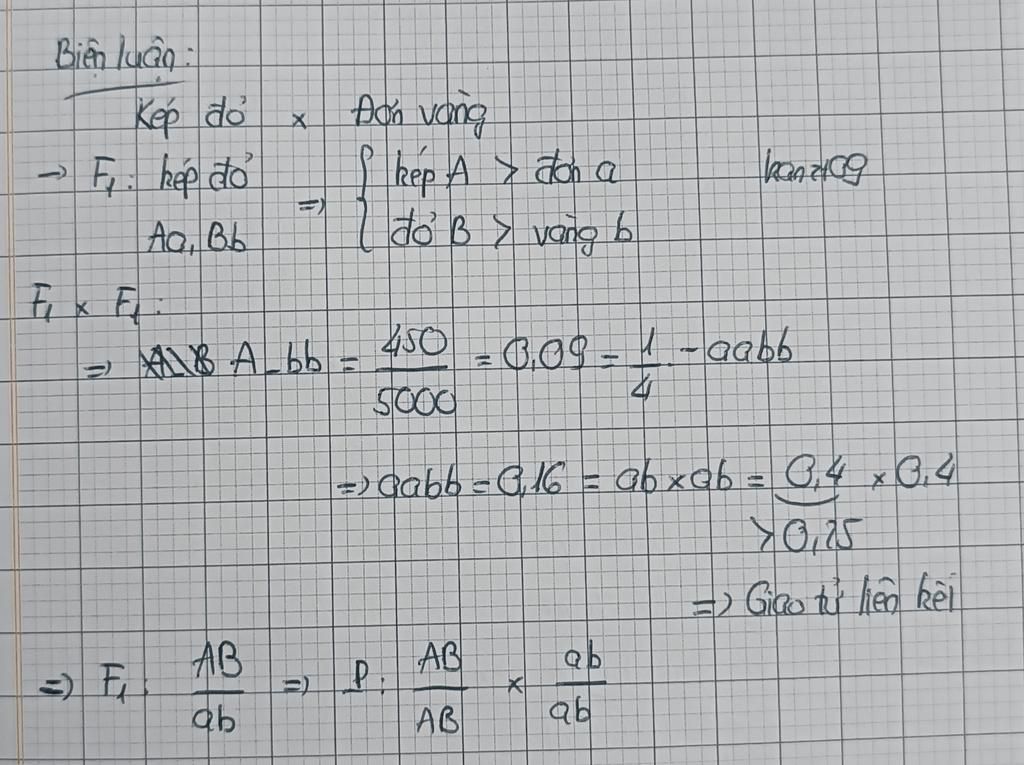 Biện luận:
Kép đỏ x Đơn vàng
→ F₁: kép đỏ => { kép A > đơn a
Aa, Bb { đỏ B > vàng b
F₁ x F₁:
=> A_bb = 450/5000 = 0,09 = 1/4 - aabb
=> aabb = 0,16 = ab x ab = 0,4 x 0,4
> 0,25
=> Giao tử liên kết
=> F₁: AB/ab => P: AB/AB x ab/ab